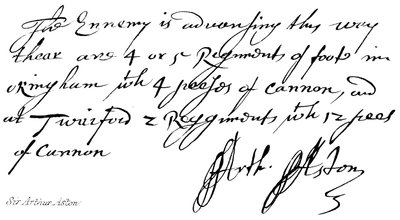 The Ennemy is advansing this wey
thear are 4 or 5 Regiments of foote in
okingham wth 4 peeses of Cannon, and
at Twaiford 2 Reggiments wth 12 pees
of Cannon
Arth. Aston
Sir Arthur Aston